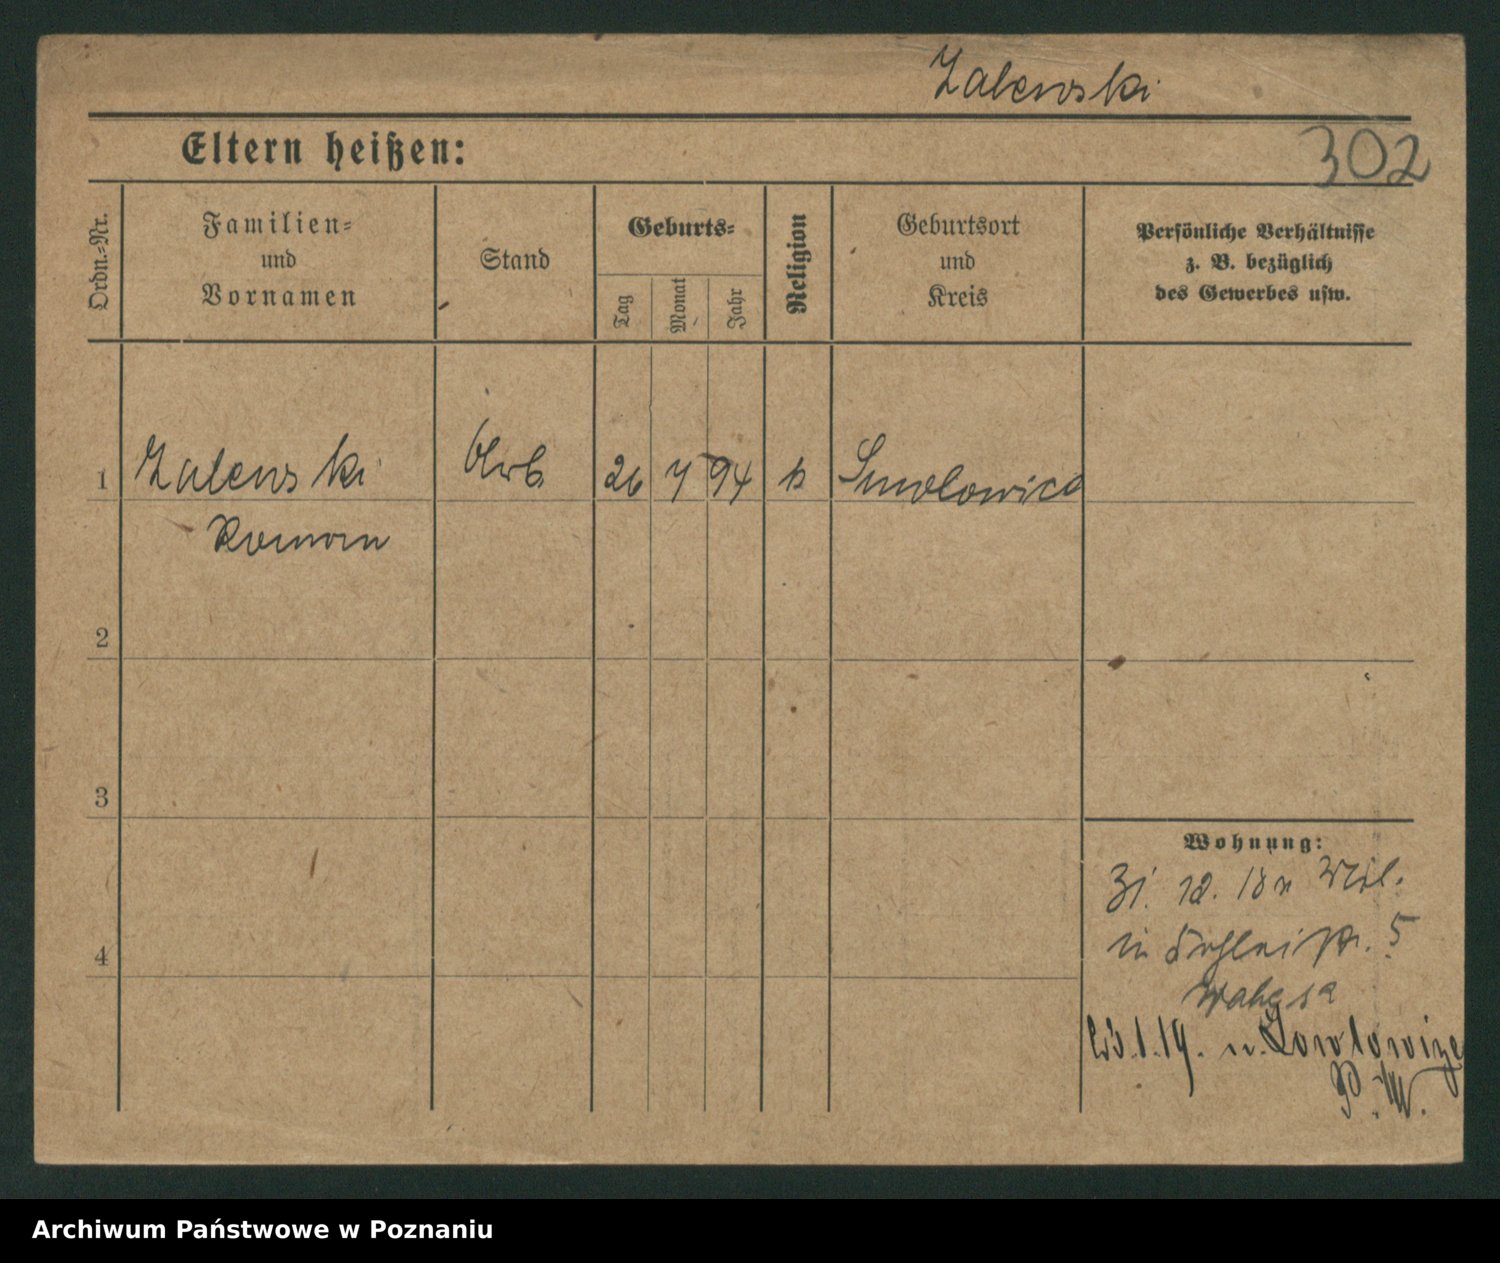 Zalewski
Eltern heißen:
302
Ordn.-Nr.
Familien-
und
Vornamen
Stand
Geburts-
Tag
Monat
Jahr
Religion
Geburtsort
und
Kreis
Persönliche Verhältnisse
z. B. bezüglich
des Gewerbes usw.
1
Zalewski
Arb
26
7
94
k
Smolowice
Roman
2
3
Wohnung:
31. 12. 18 n
in
5
4
23.1.19. n.
Archiwum Państwowe w Poznaniu